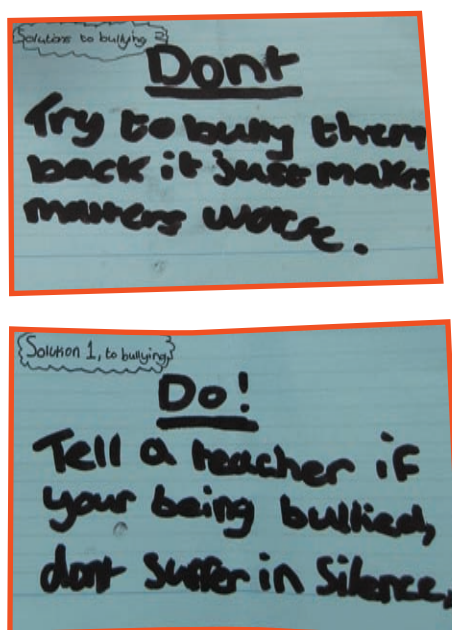 Solutions to bullying 2
Dont
Try to bully them
back it just makes
matters worse.
Solution 1, to bullying
Do!
Tell a teacher if
your being bullied,
dont suffer in silence.